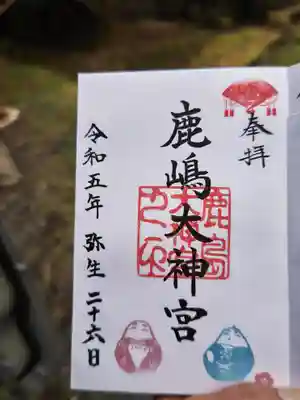 奉拝
鹿嶋大神宮
令和五年 弥生 二十六日